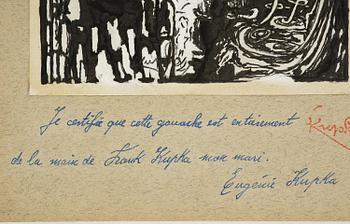 Je certifie que cette gouache est entièrement
de la main de Frank Kupka mon mari.
Eugénie Kupka
Kupka